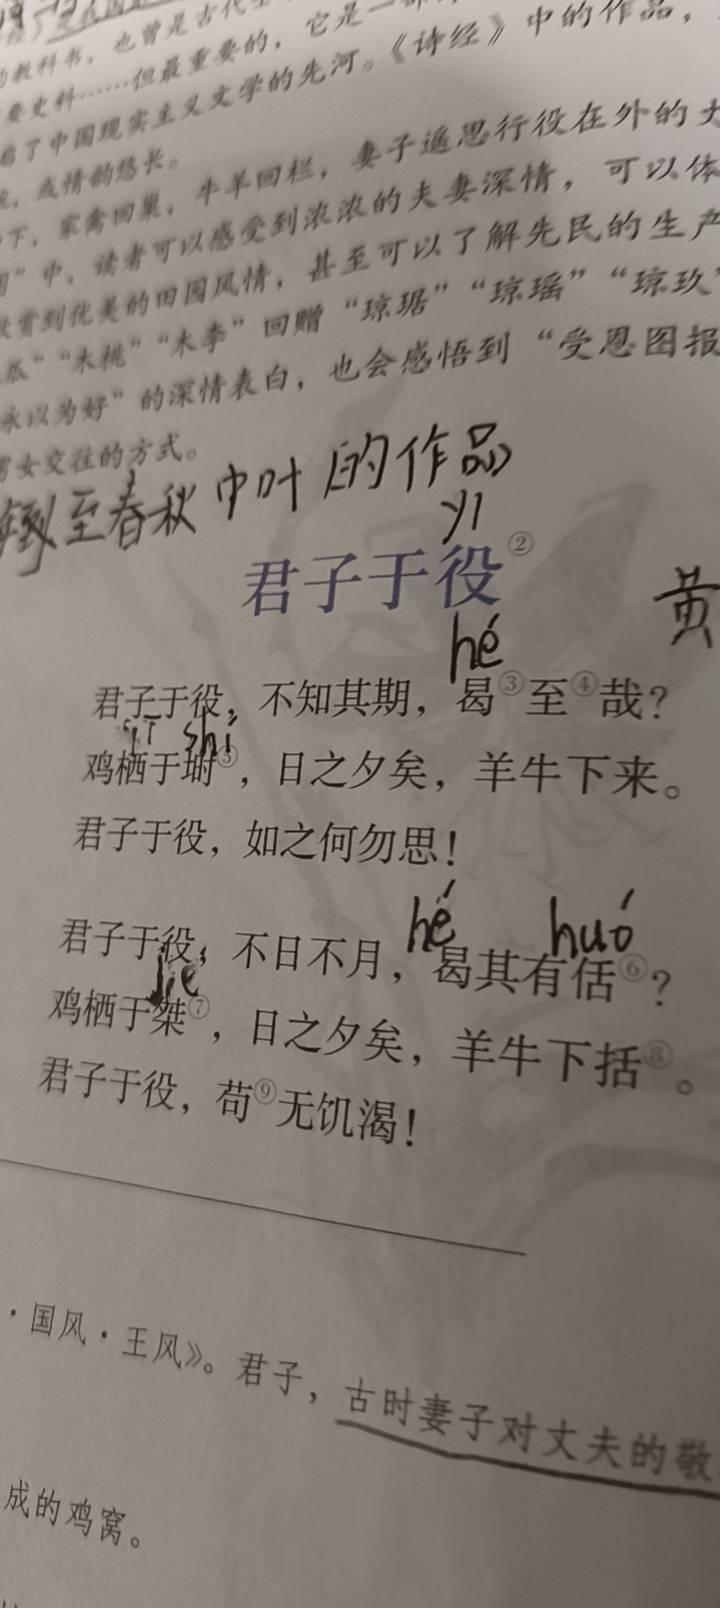 教科书，也曾是古代
要史料……但最重要的，它是一部
启了中国现实主义文学的先河。《诗经》中的作品，
，感情韵悠长。
下，家禽回巢，牛羊回栏，妻子遥思行役在外的丈
”中，读者可以感受到浓浓的夫妻深情，可以体
赏到优美的田园风情，甚至可以了解先民的生产
瓜”“木桃”“木李”回赠“琼琚”“琼瑶”“琼玖”
永以为好”的深情表白，也会感悟到“受恩图报
男女交往的方式。
至春秋中叶的作品
yì
君子于役②
黄
hé
君子于役，不知其期，曷③至④哉？
shí
鸡栖于埘⑤，日之夕矣，羊牛下来。
君子于役，如之何勿思！
hé huó
君子于役，不日不月，曷其有佸⑥？
jié
鸡栖于桀⑦，日之夕矣，羊牛下括⑧。
君子于役，苟⑨无饥渴！
·国风·王风》。君子，古时妻子对丈夫的敬
成的鸡窝。